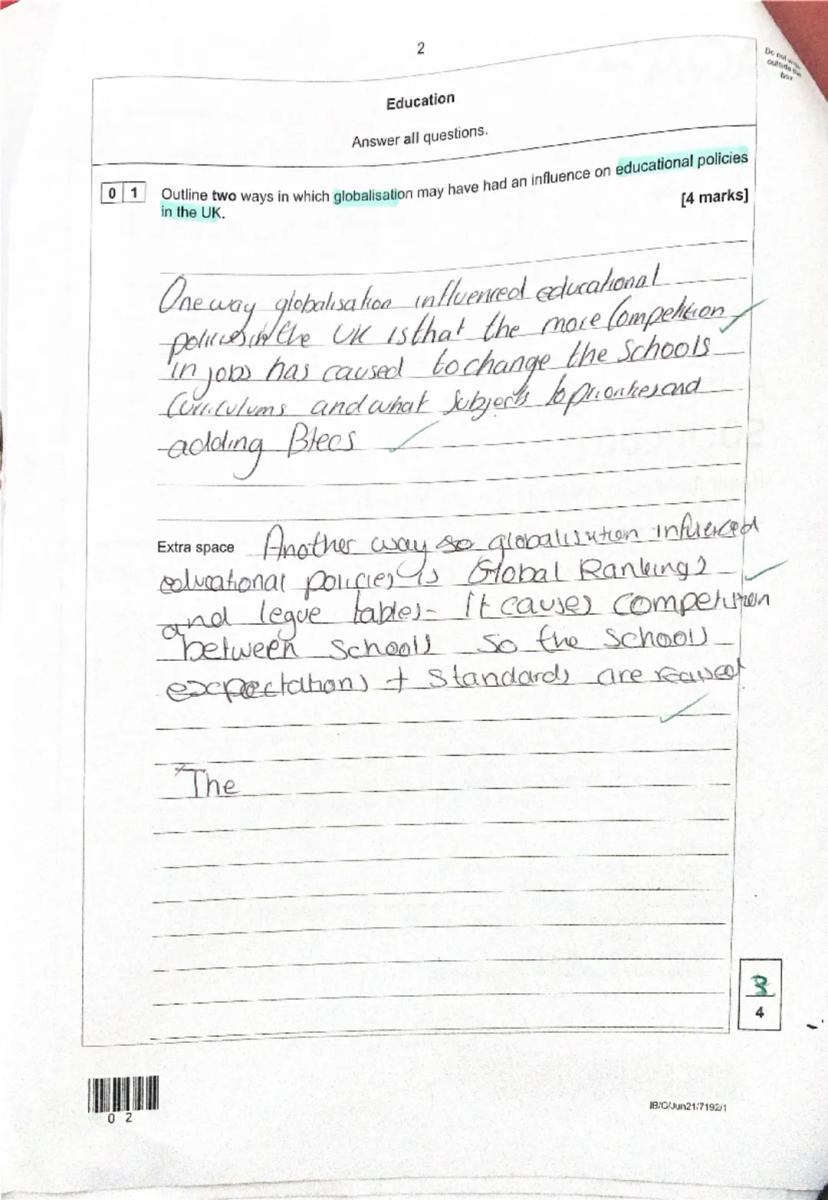 2
Do not write
outside the
box
Education
Answer all questions.
0 1 Outline two ways in which globalisation may have had an influence on educational policies
in the UK.
[4 marks]
One way globalisation influenced educational
policies in the UK is that the more Competition
in jobs has caused to change the Schools
Curriculums and what Subjects to priorities and
adding Btecs
Extra space Another way so globalisation influenced
educational policies is Global Rankings
and legue tables- It causes competition
between schools so the schools
expectations + standards are reased
The
3
4
0 2
IB/G/Jun21/7192/1